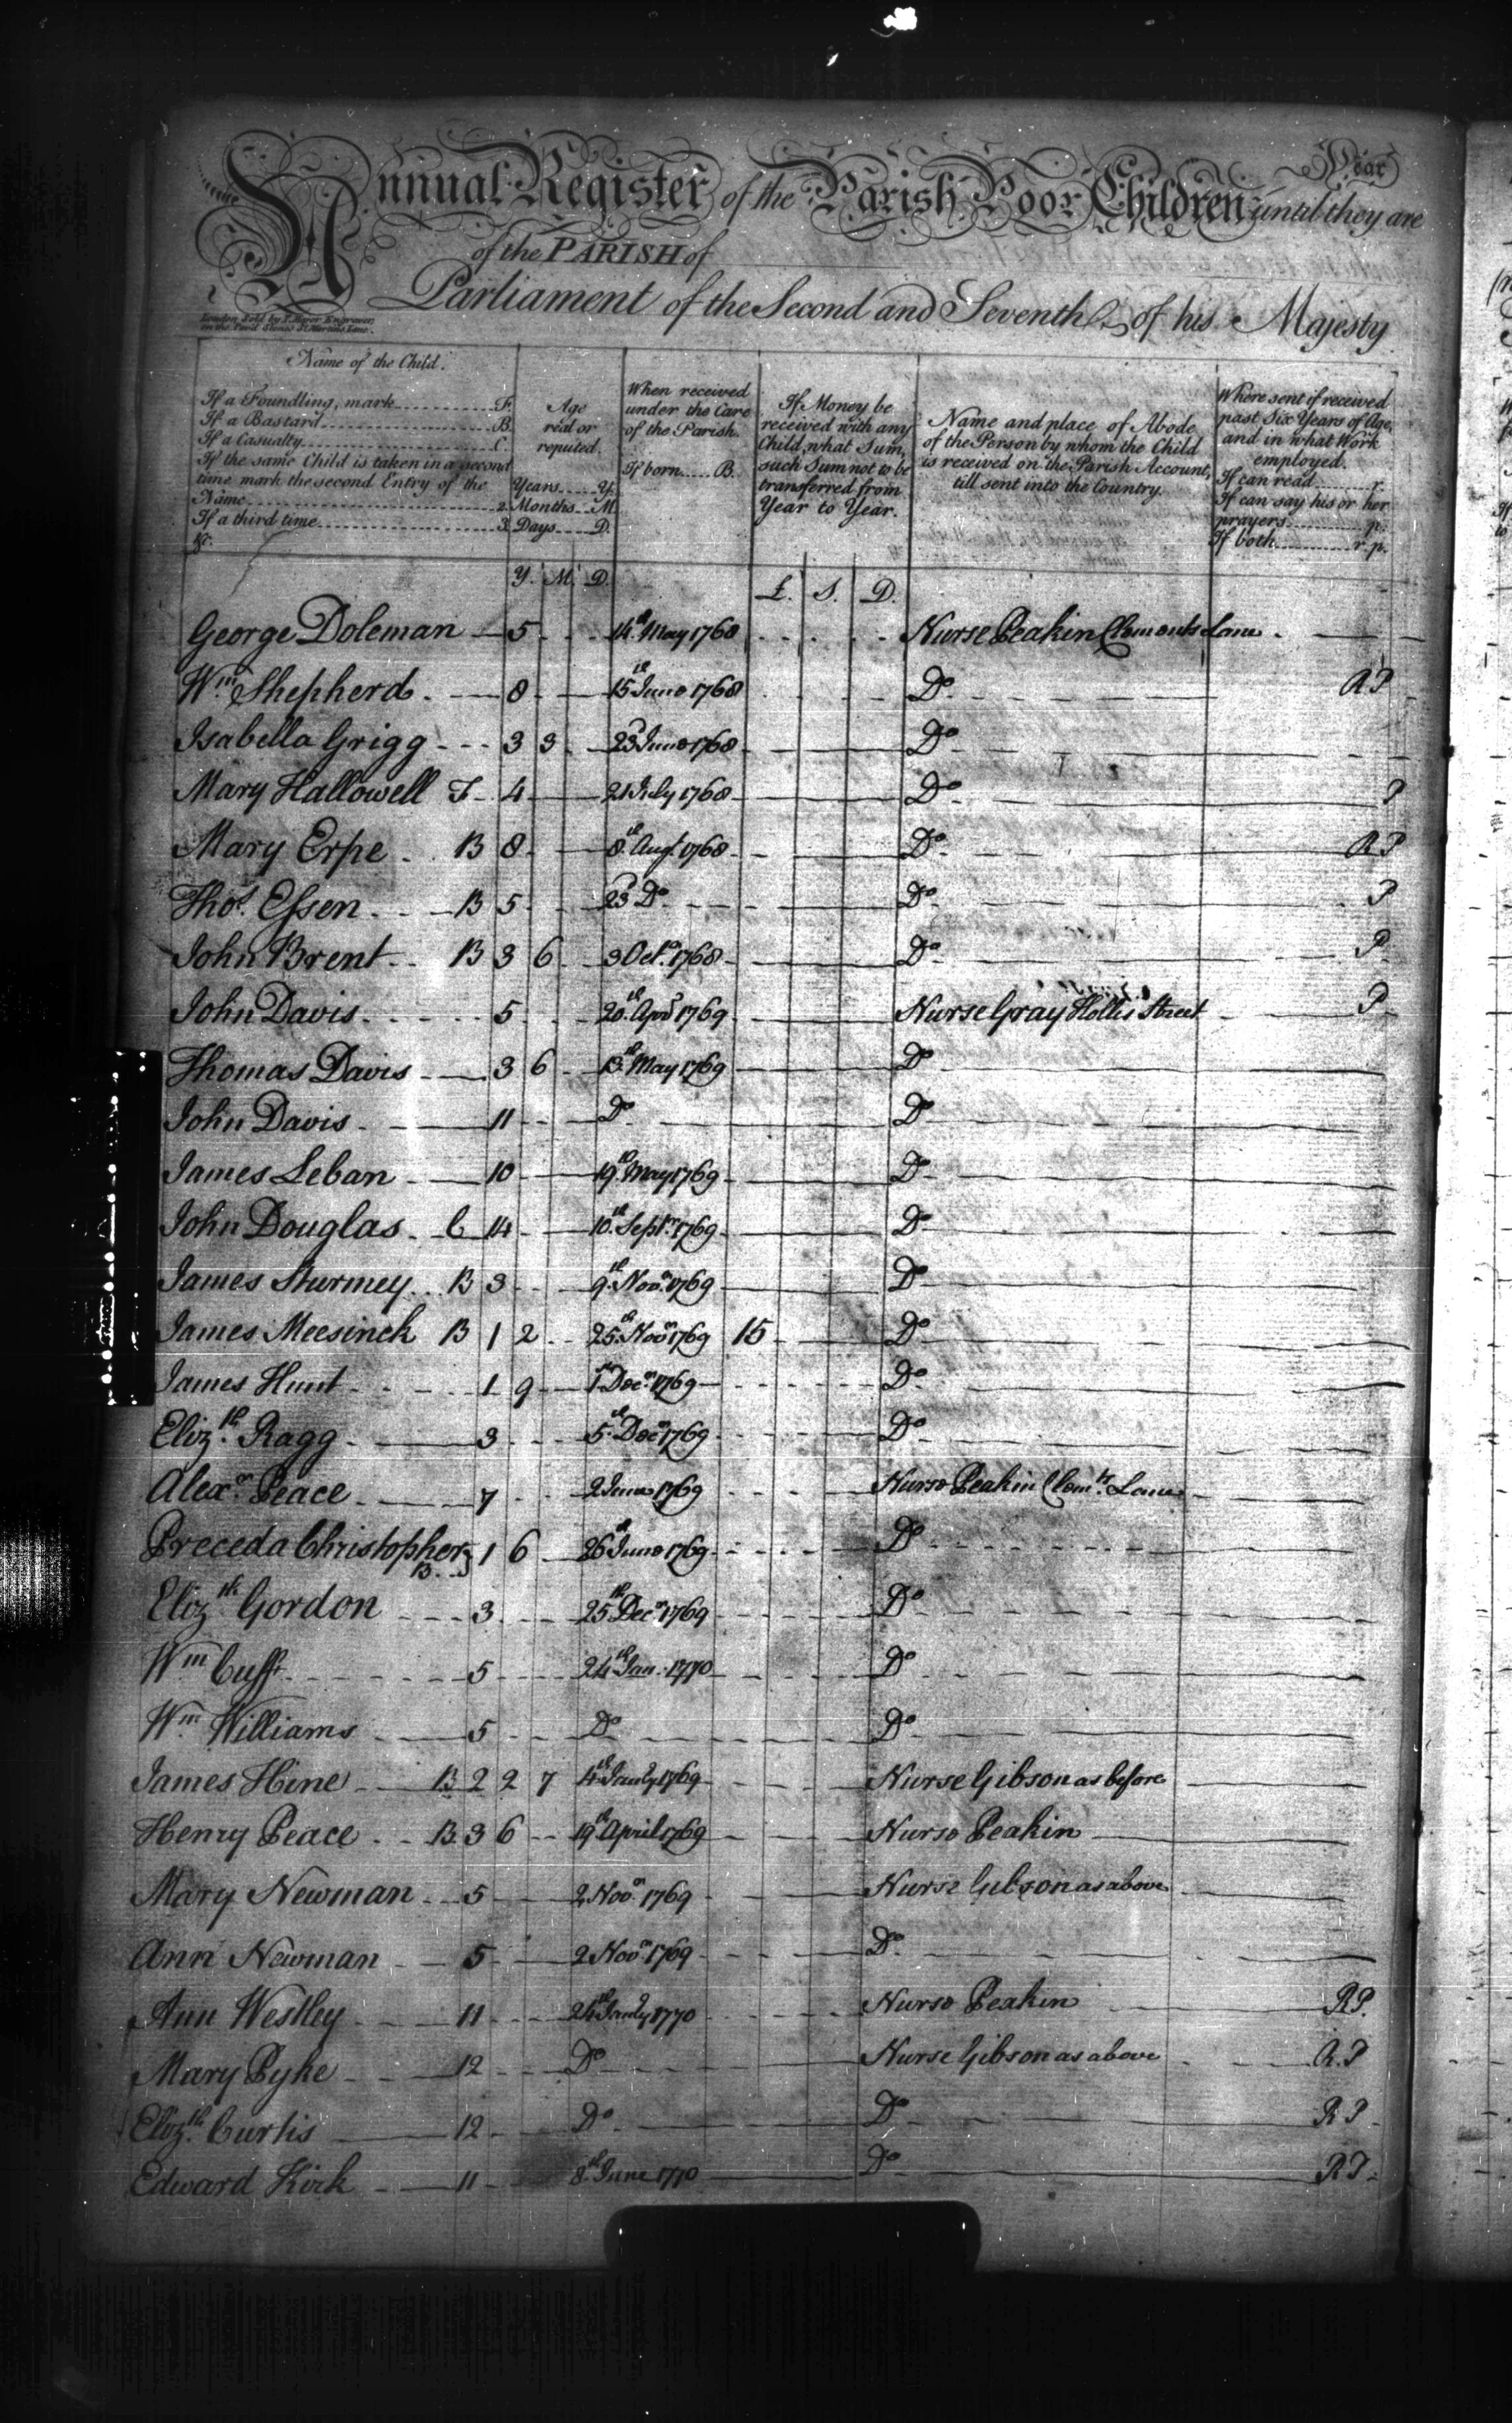 Year
Annual Register of the Parish Poor Children until they are
of the PARISH of
Parliament of the Second and Seventh of his Majesty
London Sold by
Name of the Child.
If a Foundling, mark F.
If a Bastard B.
If a Casualty C.
If the same Child is taken in a second
time mark the second Entry of the
Name 2.
If a third time 3.
&c.
Age
real or
reputed.
Years Y.
Months M.
Days D.
When received
under the Care
of the Parish.
If born B.
If Money be
received with any
Child, what Sum,
such Sum not to be
transferred from
Year to Year.
Name and place of Abode
of the Person by whom the Child
is received on the Parish Account,
till sent into the Country.
Where sent if received
past Six Years of Age,
and in what Work
employed.
If can read r.
If can say his or her
prayers p.
If both r. p.
Y. M. D. £. S. D.
George Doleman 5 14th May 1768 Nurse Peakin Clements Lane
Wm Shepherd 8 15th June 1768 Do R P
Isabella Grigg 3 3 23d June 1768 Do
Mary Hallowell F 4 21 July 1768 Do P
Mary Erpe B 8 8th Augt 1768 Do R P
Thos. Essen B 5 23d Do Do P
John Brent B 3 6 3 Octr. 1768 Do P
John Davis 5 20th Aprl 1769 Nurse Gray Hollis Street P
Thomas Davis 3 6 13th May 1769 Do
John Davis 11 Do Do
James Leban 10 19th May 1769 Do
John Douglas C 14 10th Septr 1769 Do
James Sturmey B 3 9th Novr 1769 Do
James Meesinck B 1 2 25th Novr 1769 15 Do
James Hunt 1 9 1st Decr 1769 Do
Elizth. Ragg 3 5th Decr 1769 Do
Alexr. Peace 7 2 June 1769 Nurse Peakin Clemts. Lane
Preceda Christophers B 1 6 26th June 1769 Do
Elizth Gordon 3 25th Decr 1769 Do
Wm Cuff 5 24th Jan. 1770 Do
Wm Williams 5 Do Do
James Hine B 2 2 7 4th Janry 1769 Nurse Gibson as before
Henry Peace B 3 6 19th April 1769 Nurse Peakin
Mary Newman 5 2 Novr 1769 Nurse Gibson as above
Ann Newman 5 2 Novr 1769 Do
Ann Westley 11 24th Janry 1770 Nurse Peakin R P.
Mary Pyke 12 Do Nurse Gibson as above R. P
Elizth. Curtis 12 Do Do R P
Edward Kirk 11 8th June 1770 Do R P